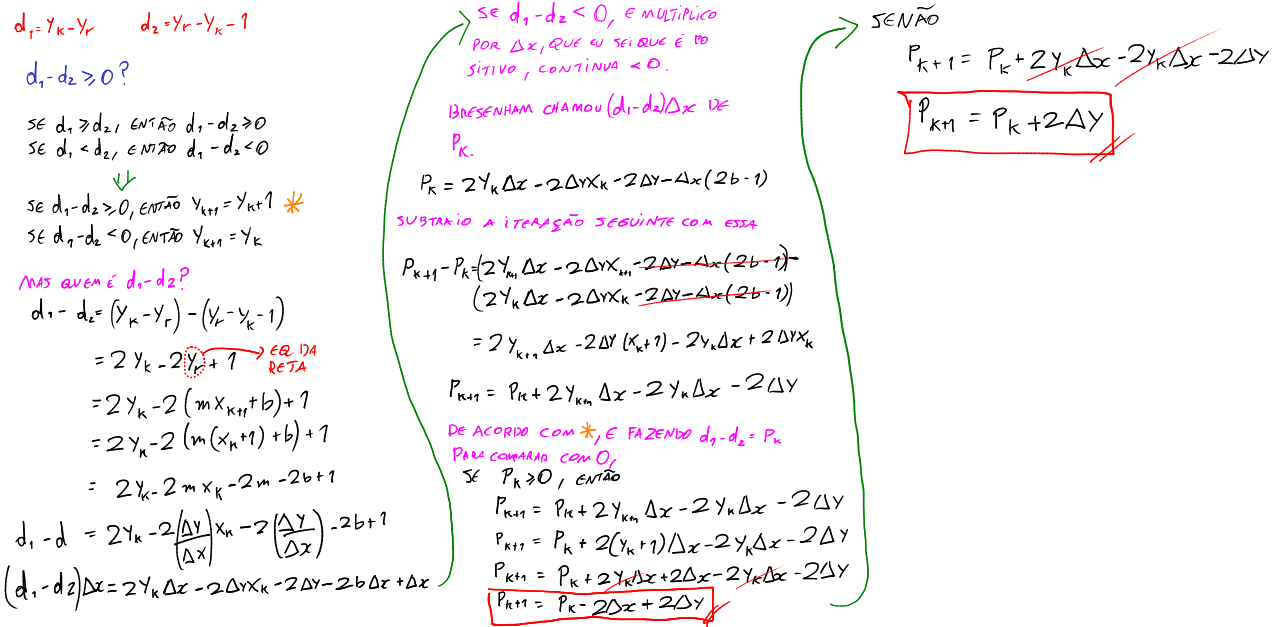 d₁=Yₖ-Yᵣ d₂=Yᵣ-Yₖ-1
d₁-d₂≥0?
SE d₁≥d₂, ENTÃO d₁-d₂≥0
SE d₁<d₂, ENTÃO d₁-d₂<0
⇓
SE d₁-d₂≥0, ENTÃO Yₖ₊₁=Yₖ+1 *
SE d₁-d₂<0, ENTÃO Yₖ₊₁=Yₖ
MAS QUEM É d₁-d₂?
d₁-d₂=(Yₖ-Yᵣ)-(Yᵣ-Yₖ-1)
=2Yₖ-2Yᵣ+1 → EQ DA
RETA
=2Yₖ-2(mXₖ₊₁+b)+1
=2Yₖ-2(m(Xₖ+1)+b)+1
= 2Yₖ-2mXₖ-2m-2b+1
d₁-d = 2Yₖ-2(ΔY/ΔX)Xₖ-2(ΔY/ΔX)-2b+1
(d₁-d₂)Δx=2YₖΔx-2ΔYXₖ-2ΔY-2bΔx+Δx
SE d₁-d₂<0, E MULTIPLICO
POR Δx, QUE EU SEI QUE É PO
SITIVO, CONTINUA <0.
BRESENHAM CHAMOU (d₁-d₂)Δx DE
Pₖ.
Pₖ=2YₖΔx-2ΔYXₖ-2ΔY-Δx(2b-1)
SUBTRAIO A ITERAÇÃO SEGUINTE COM ESSA
Pₖ₊₁-Pₖ=(2Yₖ₊₁Δx-2ΔYXₖ₊₁-2ΔY-Δx(2b-1)-
(2YₖΔx-2ΔYXₖ-2ΔY-Δx(2b-1))
=2Yₖ₊₁Δx-2ΔY(Xₖ+1)-2YₖΔx+2ΔYXₖ
Pₖ₊₁= Pₖ+2Yₖ₊₁Δx-2YₖΔx-2ΔY
DE ACORDO COM *, E FAZENDO d₁-d₂=Pₖ
PARA COMPARAR COM 0,
SE Pₖ≥0, ENTÃO
Pₖ₊₁= Pₖ+2Yₖ₊₁Δx-2YₖΔx-2ΔY
Pₖ₊₁= Pₖ+2(Yₖ+1)Δx-2YₖΔx-2ΔY
Pₖ₊₁= Pₖ+2YₖΔx+2Δx-2YₖΔx-2ΔY
Pₖ₊₁= Pₖ-2Δx+2ΔY
SENÃO
Pₖ₊₁= Pₖ+2YₖΔx-2YₖΔx-2ΔY
Pₖ₊₁= Pₖ+2ΔY